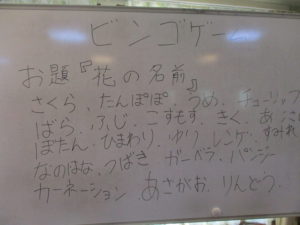 ビンゴゲーム
お題『花の名前』
さくら、たんぽぽ、うめ、チューリップ
ばら、ふじ、こすもす、きく、
ぼたん、ひまわり、ゆり、レンゲ、すみれ
なのはな、つばき、ガーベラ、パンジー
カーネーション、あさがお、りんどう、